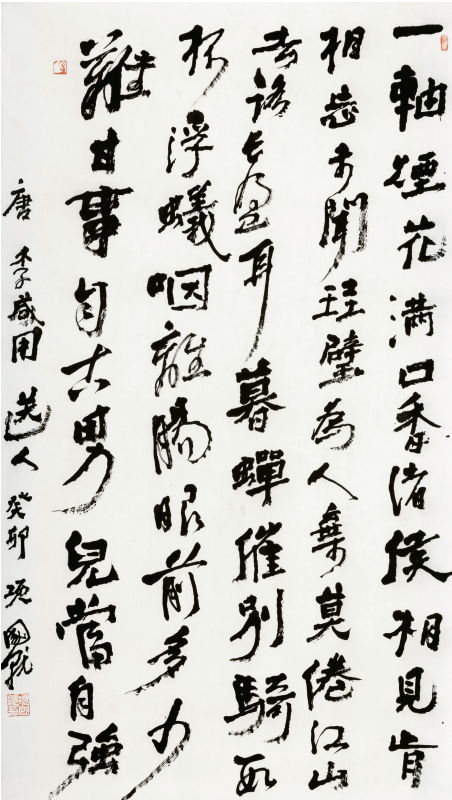 一軸煙花滿口香諸侯相見肯
相忘未聞珪璧為人棄莫倦江山
去路長盈耳暮蟬催別騎數
杯浮蟻咽離腸眼前多少
難甘事自古男兒當自強
唐李咸用送人癸卯項國